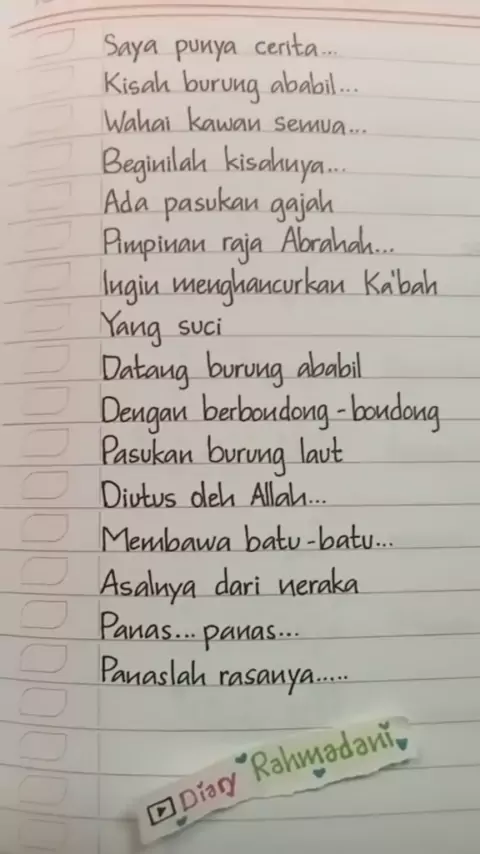 Saya punya cerita...
Kisah burung ababil...
Wahai kawan semua...
Beginilah kisahnya...
Ada pasukan gajah
Pimpinan raja Abrahah...
Ingin menghancurkan Ka'bah
Yang suci
Datang burung ababil
Dengan berbondong-bondong
Pasukan burung laut
Diutus oleh Allah...
Membawa batu-batu...
Asalnya dari neraka
Panas... panas...
Panaslah rasanya.....
Diary Rahmadani